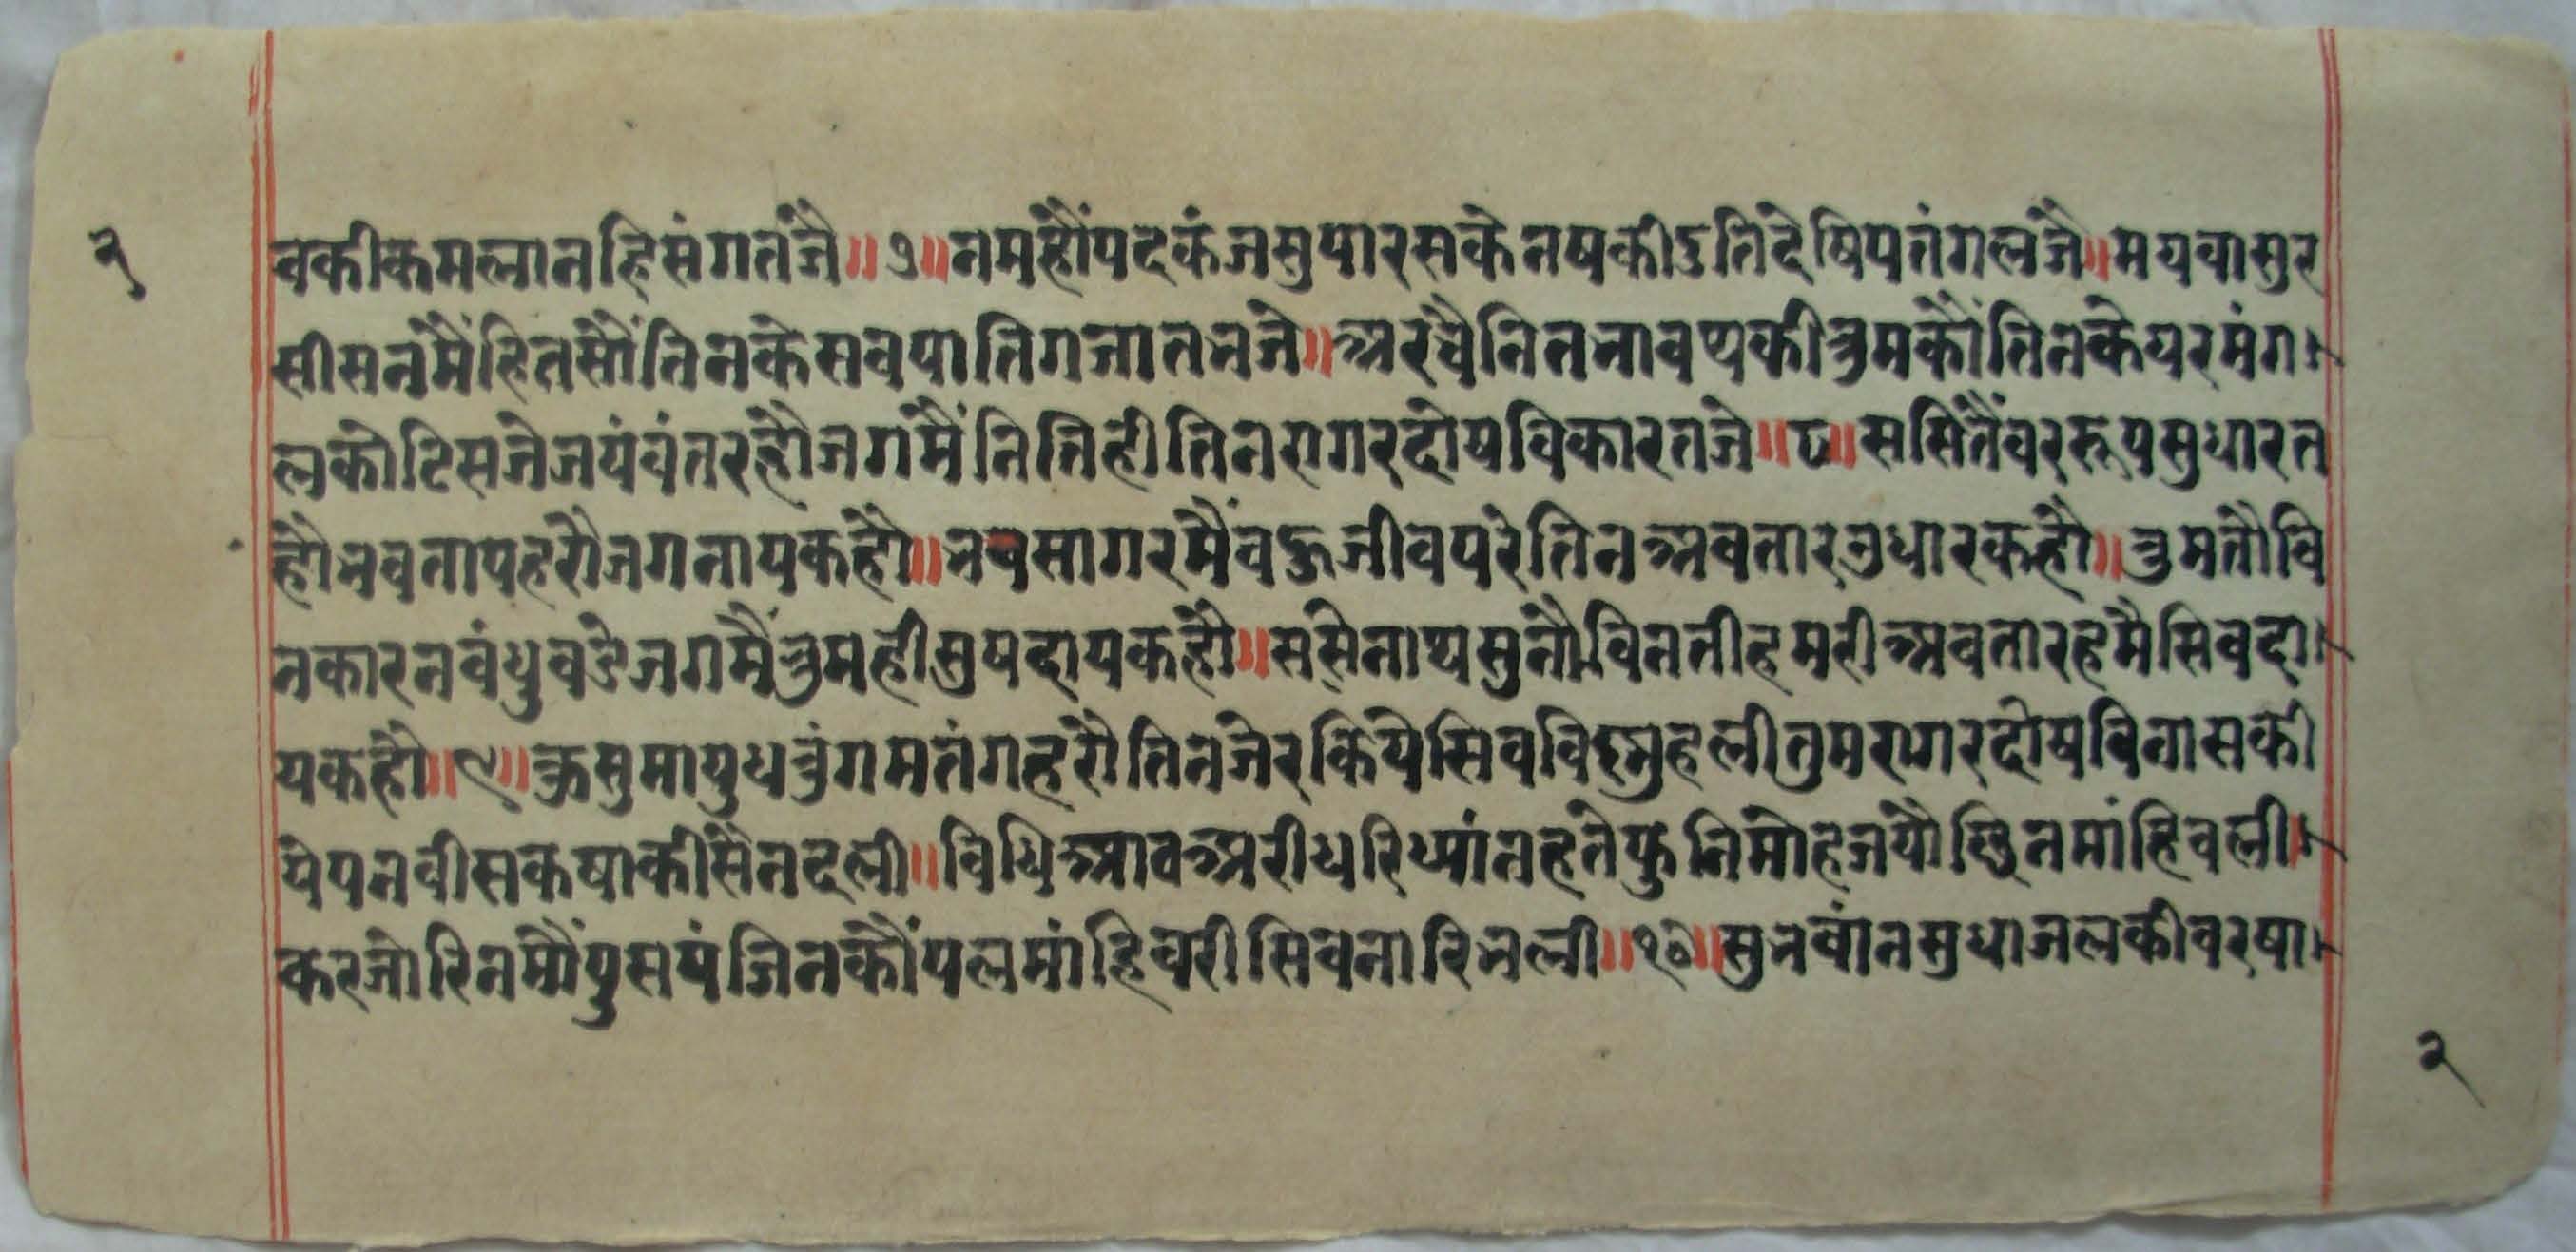 २
वकीकमलानहिसंगतंजै॥७॥नमहौंपदकंजसुपारसकेनषकीऽतिदेषिपतंगलजै॥मघवासुर
सीसनमैंहितसौंतिनकेसवपातिगजातभजे॥अरचैनितभावथकीतुमकौंतिनकेघरमंग
लकोटिसजेजयवंतरहौजगमैंनितिहीतिनरागरदोषविकारतजे॥८॥ससितैंवररूपसुधारत
हौभवतापहरौजगनायकहौ॥भवसागरमैंवहुजीवपरेतिनअवतारउधारकहौ॥तुमतौवि
नकारनवंधुवडेजगमैंतुमहीसुषदायकहौ॥ससिनाथसुनौविनतीहमरीअवतारहमैसिवदा
यकहौ॥९॥कुसुमायुधतुंगमतंगहरौतिनजेर‌कियेसिव
तुमरागरदोषविनासकी
येपनवीसकषाकीसैनदली॥विधिआवअरीधरिध्यांनहतेफुनिमोहजयौछिनमांहिवली
करजोरिनमौंपुसपंजिनकौंपलमांहिवरीसिवनारिभली॥१०॥सुनवांनसुधाजलकीवरषा
२